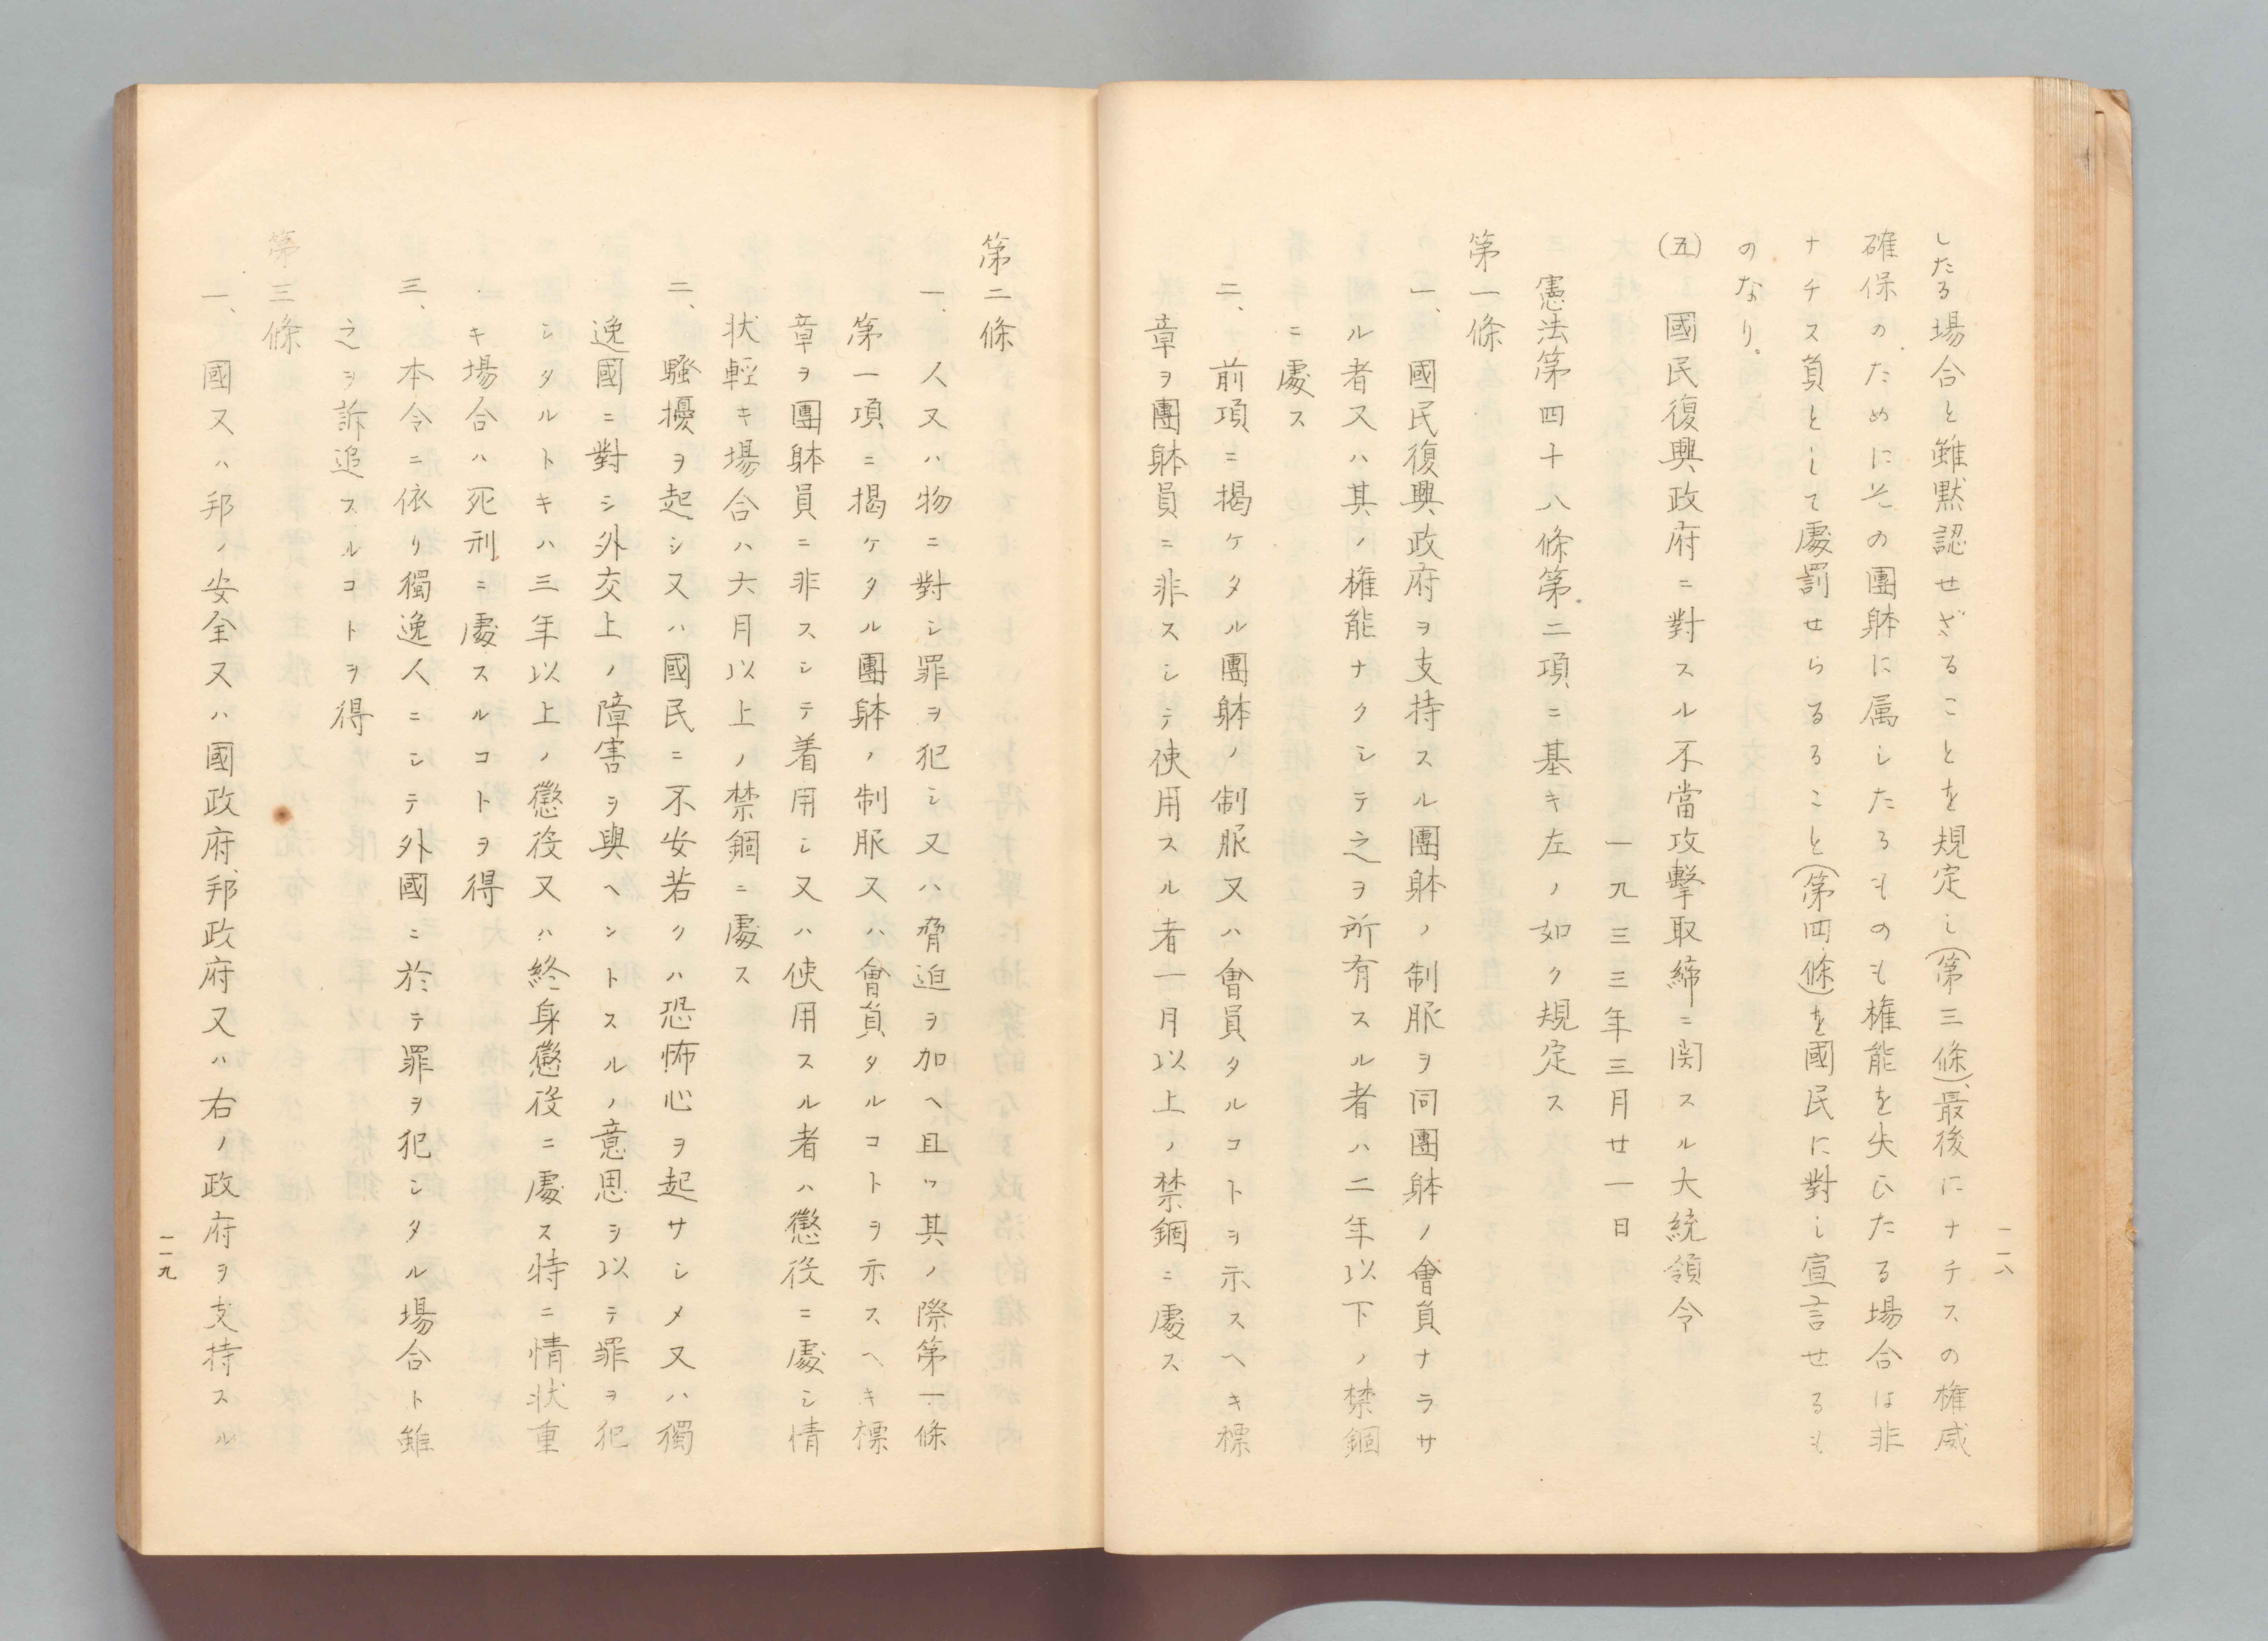 一一八
したる場合と雖黙認せざることを規定し(第三條)、最後にナチスの権威
確保のためにその團躰に属したるものも権能を失ひたる場合は非
ナチス員として處罰せらるること(第四條)を國民に對し宣言せるも
のなり。
(五) 國民復興政府ニ對スル不當攻撃取締ニ関スル大統領令
一九三三年三月廿一日
憲法第四十八條第二項ニ基キ左ノ如ク規定ス
第一條
一、國民復興政府ヲ支持スル團躰ノ制服ヲ同團躰ノ會員ナラサ
ル者又ハ其ノ権能ナクシテ之ヲ所有スル者ハ二年以下ノ禁錮
ニ處ス
二、前項ニ揭ケタル團躰ノ制服又ハ會員タルコトヲ示スヘキ標
章ヲ團躰員ニ非スシテ使用スル者一月以上ノ禁錮ニ處ス
第二條
一、人又ハ物ニ對シ罪ヲ犯シ又ハ脅迫ヲ加ヘ且ツ其ノ際第一條
第一項ニ揭ケタル團躰ノ制服又ハ會員タルコトヲ示スヘキ標
章ヲ團躰員ニ非スシテ着用シ又ハ使用スル者ハ懲役ニ處シ情
状輕キ場合ハ六月以上ノ禁錮ニ處ス
二、騒擾ヲ起シ又ハ國民ニ不安若クハ恐怖心ヲ起サシメ又ハ獨
逸國ニ對シ外交上ノ障害ヲ與ヘントスルノ意思ヲ以テ罪ヲ犯
シタルトキハ三年以上ノ懲役又ハ終身懲役ニ處ス特ニ情状重
キ場合ハ死刑ニ處スルコトヲ得
三、本令ニ依リ獨逸人ニシテ外國ニ於テ罪ヲ犯シタル場合ト雖
之ヲ訴追スルコトヲ得
第三條
一、國又ハ邦ノ安全又ハ國政府、邦政府又ハ右ノ政府ヲ支持スル
一一九